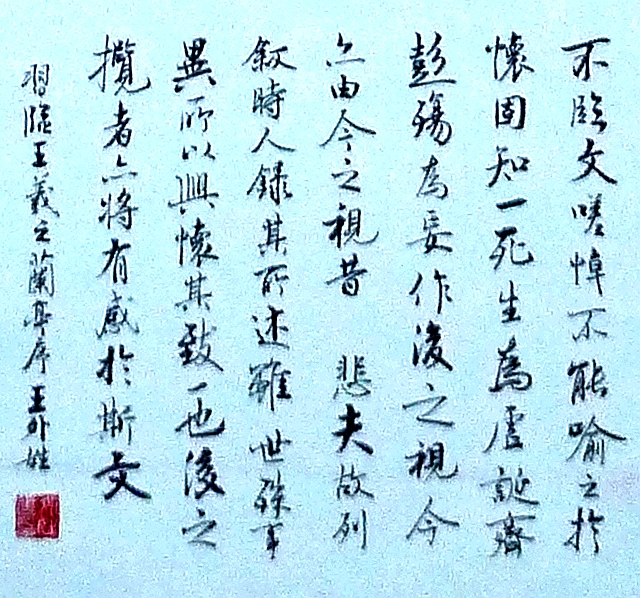 不臨文嗟悼不能喻之於
懷固知一死生為虛誕齊
彭殤為妄作後之視今
亦由今之視昔 悲夫故列
叙時人錄其所述雖世殊事
異所以興懷其致一也後之
攬者亦將有感於斯文
習臨王羲之蘭亭序 王外姓